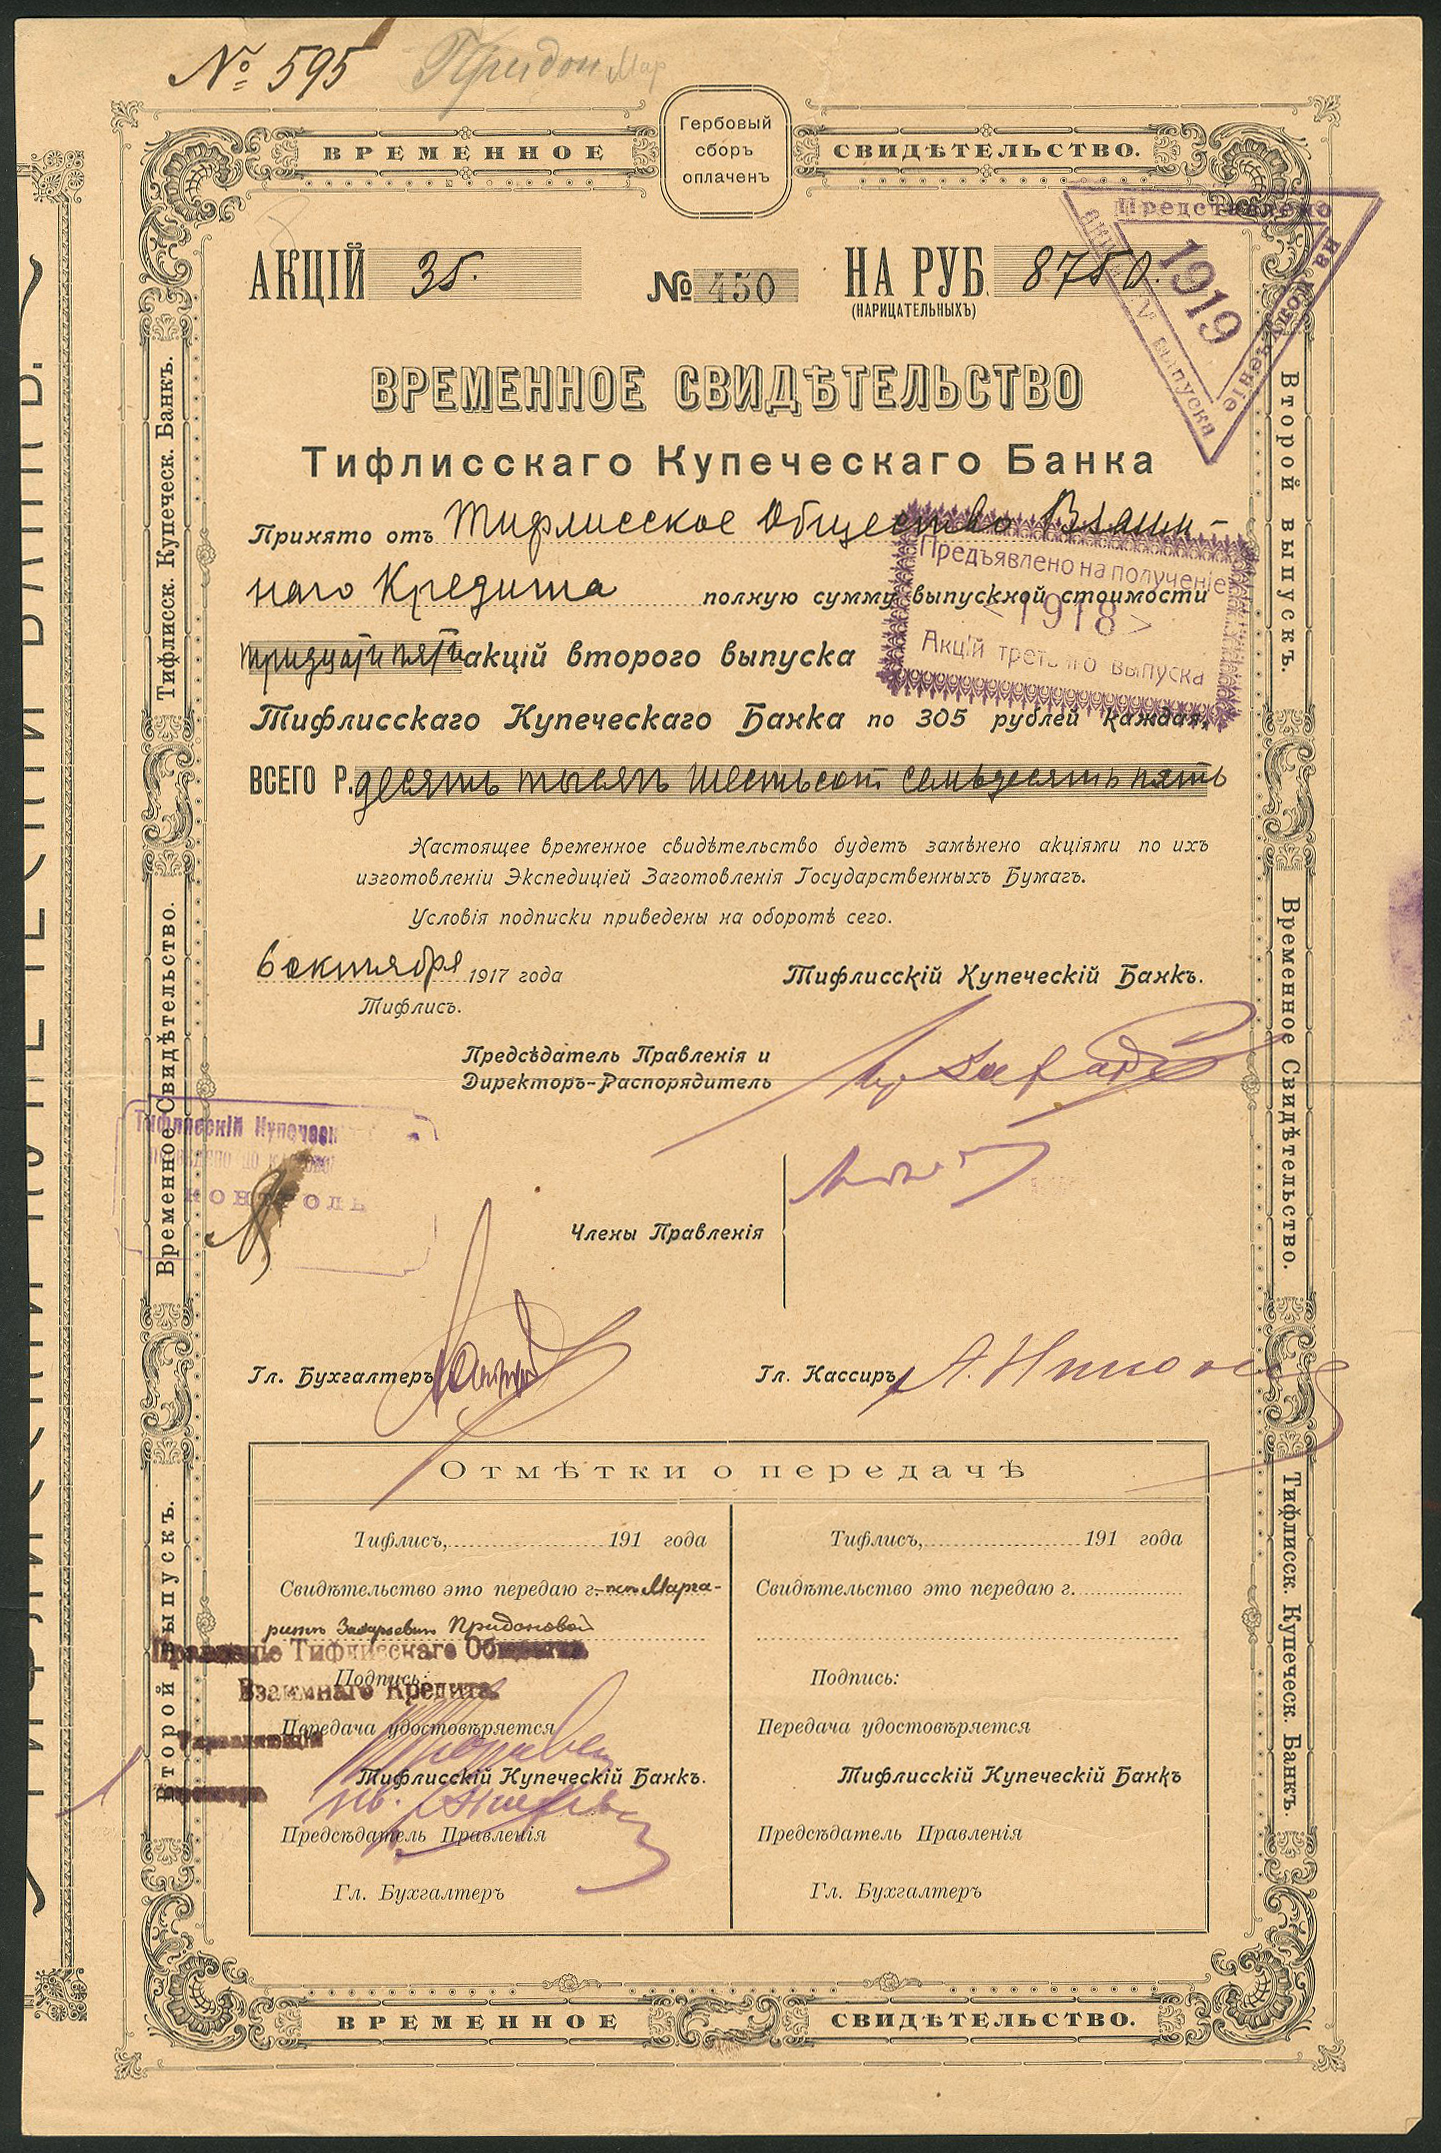 № 595 Придон Мар
Гербовый
сборъ
оплаченъ
ВРЕМЕННОЕ СВИДѢТЕЛЬСТВО.
АКЦІЙ 35. № 450 НА РУБ. 8750.
(НАРИЦАТЕЛЬНЫХЪ)
Представлено
на полученіе
акцій IV выпуска
1919
ВРЕМЕННОЕ СВИДѢТЕЛЬСТВО
Тифлисскаго Купеческаго Банка
Принято отъ Тифлисское Общество Взаим-
наго Кредита полную сумму выпускной стоимости
тридцати пяти акцій второго выпуска
Тифлисскаго Купеческаго Банка по 305 рублей каждая,
ВСЕГО Р. десять тысяч шестьсот семьдесятъ пять
Предъявлено на полученіе
< 1918 >
Акцій третьяго выпуска
Настоящее временное свидѣтельство будетъ замѣнено акціями по ихъ
изготовленіи Экспедиціей Заготовленія Государственныхъ Бумагъ.
Условія подписки приведены на оборотѣ сего.
6 октября 1917 года
Тифлисъ.
Тифлисскій Купеческій Банкъ.
Предсѣдатель Правленія и
Директоръ-Распорядитель
Тифлисскій Купеческ
КОНТРОЛЬ
Члены Правленія
Гл. Бухгалтеръ Гл. Кассиръ
Отмѣтки о передачѣ
Тифлисъ, 191 года
Свидѣтельство это передаю г. Марга-
ритѣ Захарьевнѣ Придоновой
Правленіе Тифлисскаго Общества
Взаимнаго Кредита.
Подпись:
Управляющій
Передача удостовѣряется
Тифлисскій Купеческій Банкъ.
Предсѣдатель Правленія
Гл. Бухгалтеръ
Тифлисъ, 191 года
Свидѣтельство это передаю г.
Подпись:
Передача удостовѣряется
Тифлисскій Купеческій Банкъ
Предсѣдатель Правленія
Гл. Бухгалтеръ
ВРЕМЕННОЕ СВИДѢТЕЛЬСТВО.
Второй выпускъ. Временное Свидѣтельство. Тифлисск. Купеческ. Банкъ.
Второй выпускъ. Временное Свидѣтельство. Тифлисск. Купеческ. Банкъ.